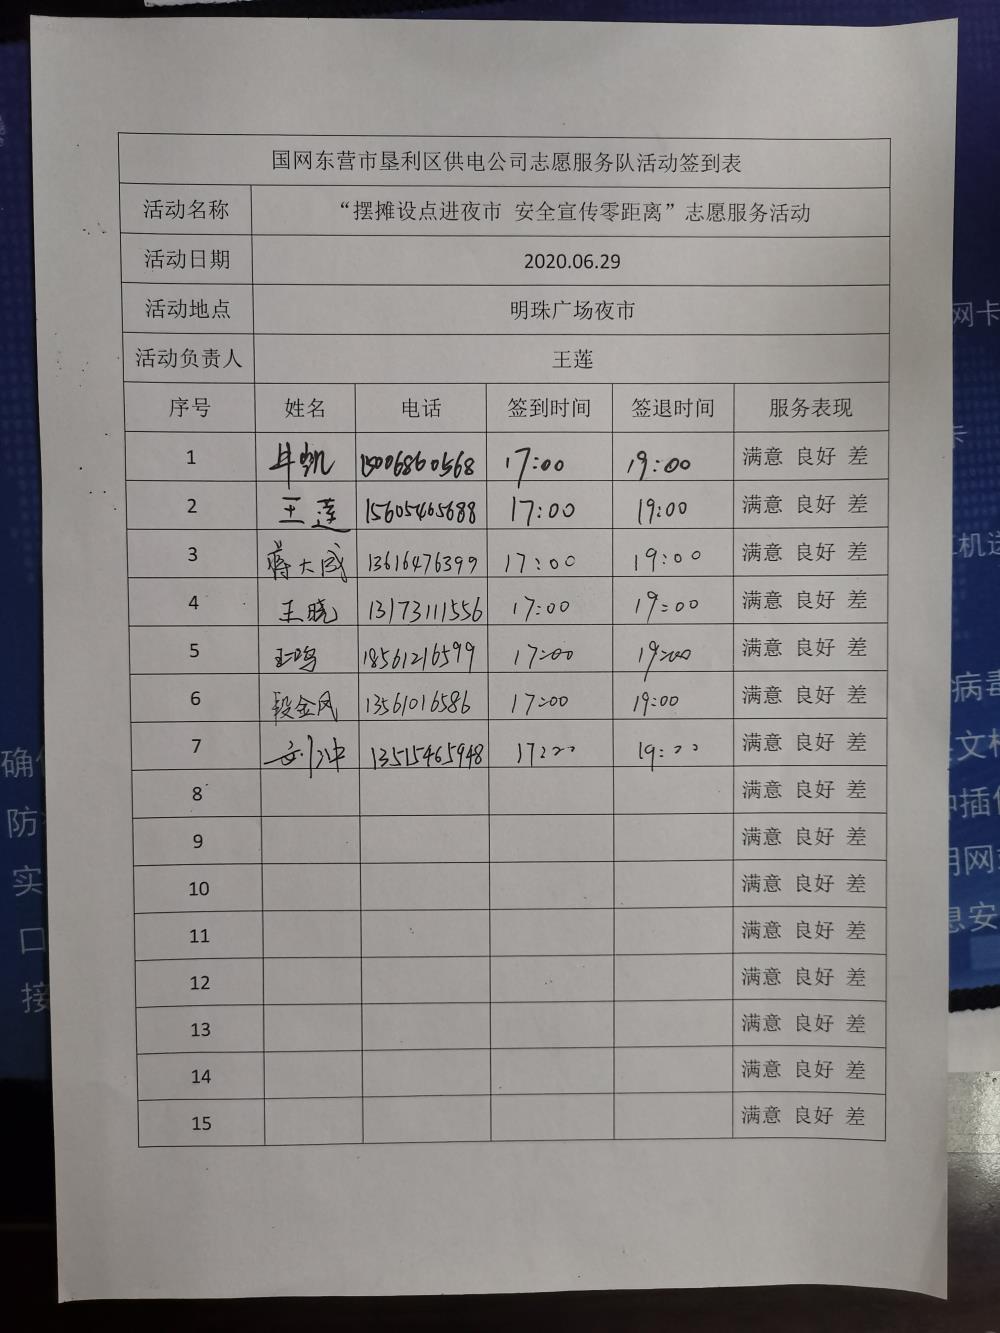 国网东营市垦利区供电公司志愿服务队活动签到表
活动名称 “摆摊设点进夜市 安全宣传零距离”志愿服务活动
活动日期 2020.06.29
活动地点 明珠广场夜市
活动负责人 王莲
序号 姓名 电话 签到时间 签退时间 服务表现
1 牟凯 15006860568 17:00 19:00 满意 良好 差
2 王莲 15605465688 17:00 19:00 满意 良好 差
3 蒋大成 13616476399 17:00 19:00 满意 良好 差
4 王晓 13173111556 17:00 19:00 满意 良好 差
5 王鸣 18561216599 17:00 19:00 满意 良好 差
6 段金凤 13561016586 17:00 19:00 满意 良好 差
7 刘冲 13515465948 17:00 19:00 满意 良好 差
8 满意 良好 差
9 满意 良好 差
10 满意 良好 差
11 满意 良好 差
12 满意 良好 差
13 满意 良好 差
14 满意 良好 差
15 满意 良好 差
网卡
卡
机
病毒
文
插
网
息安
确
防
实
口
接